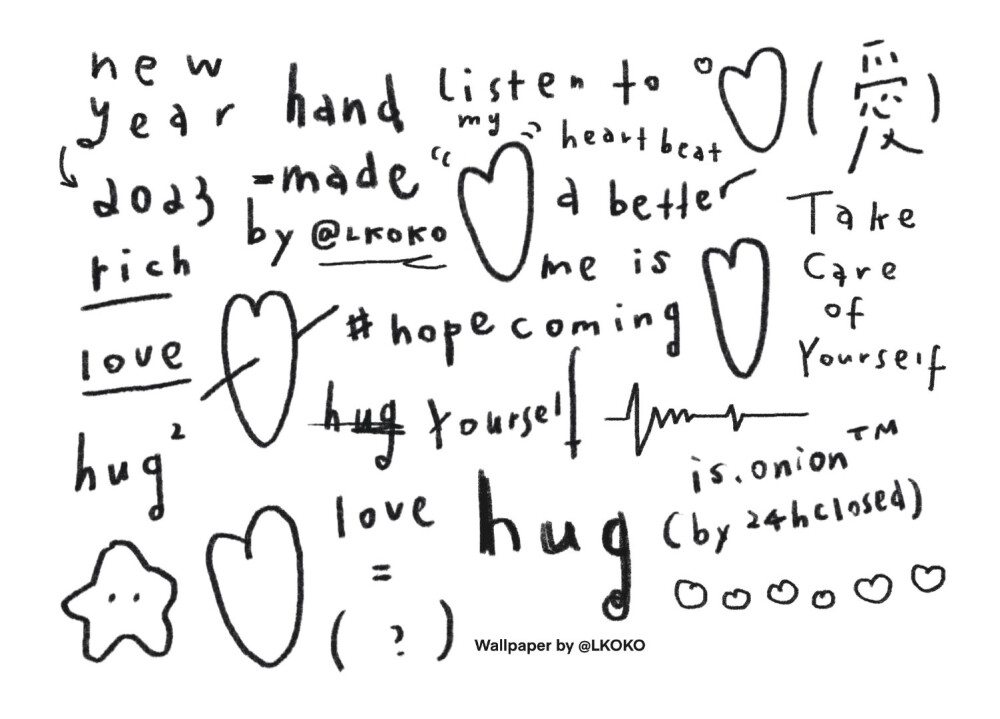 new
year
2023
rich
love
hug²
hand
-made
by @LKOKO
listen to
my
heartbeat
(愛)
a better
me is
#hopecoming
hug yourself
Take
Care
of
Yourself
is.onion™
(by 24hclosed)
love
=
(?)
hug
Wallpaper by @LKOKO